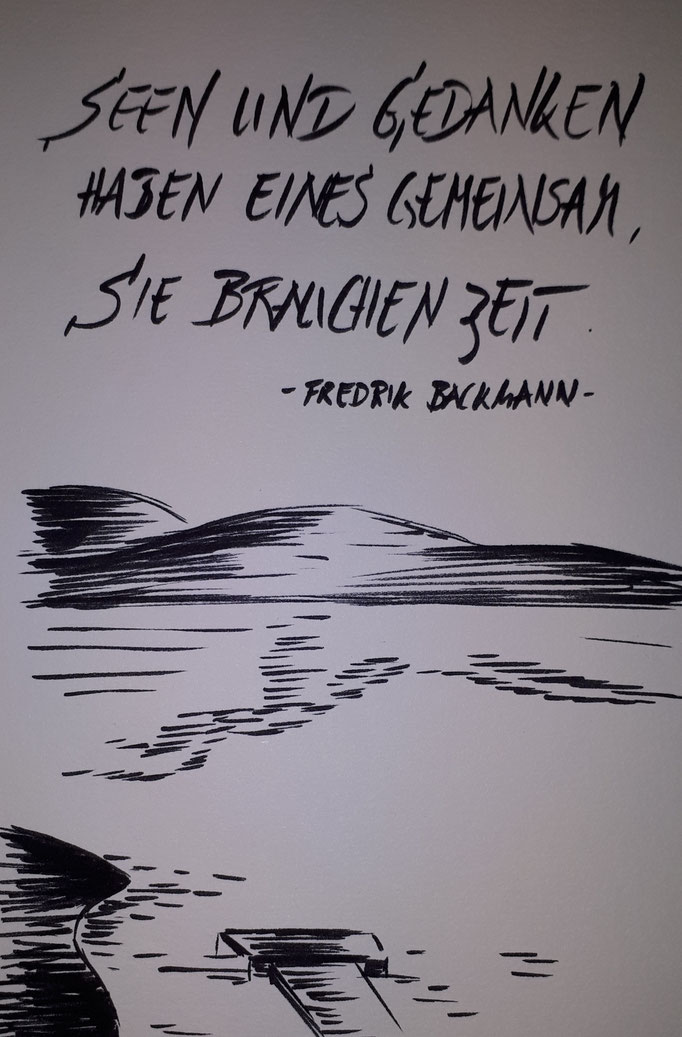 SEEN UND GEDANKEN
HABEN EINES GEMEINSAM,
SIE BRAUCHEN ZEIT.
- FREDRIK BACKMANN -